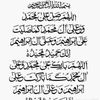 بسم الله الرحمن الرحيم
اللهم صل على محمد
وعلى آل محمد كما صليت
على ابراهيم وعلى آل ابراهيم
انك حميد مجيد
اللهم بارك على محمد وعلى
آل محمد كما باركت على
ابراهيم وعلى آل ابراهيم
انك حميد مجيد